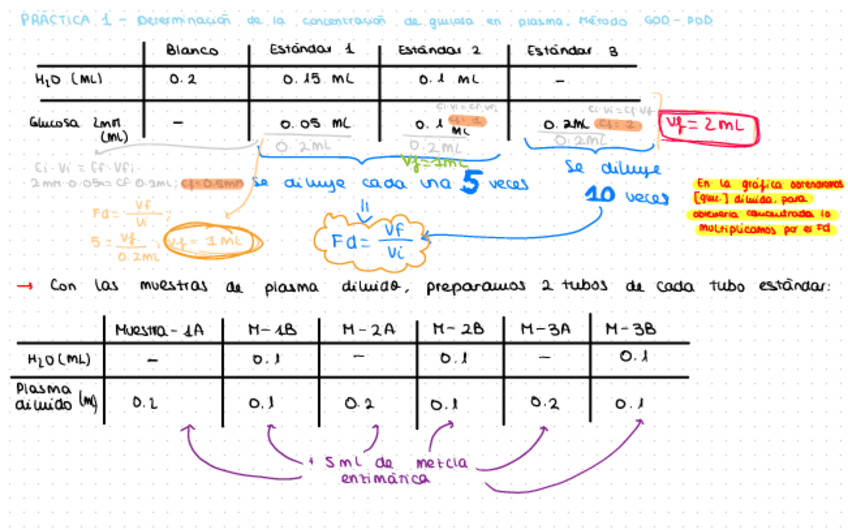 PRÁCTICA 1 - Determinación de la concentración de glucosa en plasma. Método GOD-POD
Blanco Estándar 1 Estándar 2 Estándar 3
H2O (mL) 0.2 0.15 mL 0.1 mL -
Glucosa 2mM (mL) - 0.05 mL 0.1 mL 0.2mL
Ci·Vi=Cf·Vf Ci·Vi=Cf·Vf
Cf=1 Cf=2
0.2mL 0.2mL 0.2mL
Vf=2mL
Vf=1mL
Ci·Vi = Cf·Vf
2mM·0.05=Cf·0.2mL; Cf=0.5mM
Se diluye cada una 5 veces
Se diluye 10 veces
Fd = Vf/Vi;
5 = Vf/0.2mL; Vf = 1mL
Fd = Vf/Vi
En la gráfica obtendremos
[gluc.] diluida, para
obtenerla concentrada lo
multiplicamos por el Fd
→ Con las muestras de plasma diluido, preparamos 2 tubos de cada tubo estándar:
Muestra-1A M-1B M-2A M-2B M-3A M-3B
H2O(mL) - 0.1 - 0.1 - 0.1
Plasma diluido (ml) 0.2 0.1 0.2 0.1 0.2 0.1
+ 5mL de mezcla
enzimática